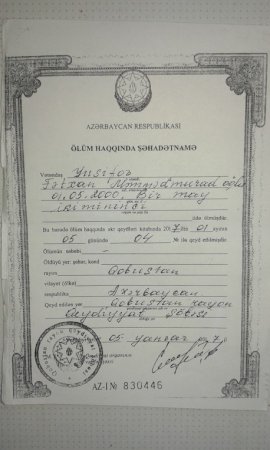 AZƏRBAYCAN RESPUBLİKASI
ÖLÜM HAQQINDA ŞƏHADƏTNAMƏ
Vətəndaş Yusifov
oğlu
01.05.2000, Bir may
iki mininci
ildə ölmüşdür.
Bu barədə ölüm haqqında akt qeydləri kitabında 2017 ilin 01 ayının
05 günündə 04 № ilə qeyd edilmişdir.
Ölümün səbəbi
Öldüyü yer: şəhər, kənd
rayon Qobustan
vilayət (ölkə)
respublika Azərbaycan
Qeyd edilən yer Qobustan rayon
Qeydiyyat Şöbəsi
05 yanvar
AZ-I № 830446